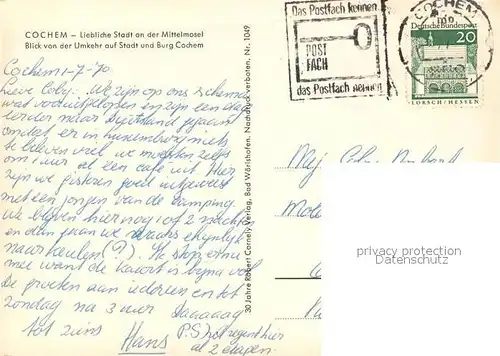 COCHEM – Liebliche Stadt an der Mittelmosel
Blick von der Umkehr auf Stadt und Burg Cochem
Cochem 1-7-'70
Lieve Coby. We zijn op ons schema
wat vooruitgelopen en zijn een dag
eerder naar Duitsland gegaan
omdat er in Luxemburg niets
te beleven viel, we moesten zelfs
om 1 uur al een café uit. Hier
zijn we gisteren goed uitgeweest
met een jongen van de camping.
We blijven hier nog 1 of 2 nachten
en dan gaan we
naar Keulen (?). Ik stop ermee
mee want de kaart is bijna vol
de groeten aan iedereen en tot
zondag na 3 uur Daaaaag
tot ziens Hans
P.S. het regent hier
al 2 etapen.
30 Jahre Robert Cornely Verlag, Bad Wörishofen. Nachdruck verboten. Nr. 1049
Das Postfach kennen
POST
FACH
das Postfach nennen
COCHEM
Deutsche Bundespost
20
LORSCH/HESSEN
privacy protection
Datenschutz